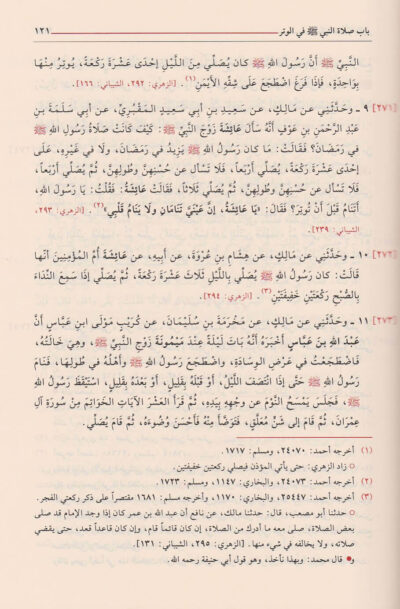 باب صلاة النبي ﷺ في الوتر ١٢١
النَّبِيِّ ﷺ أَنَّ رَسُولَ اللهِ ﷺ كَانَ يُصَلِّي مِنَ اللَّيْلِ إِحْدَى عَشْرَةَ رَكْعَةً، يُوتِرُ مِنْهَا
بِوَاحِدَةٍ، فَإِذَا فَرَغَ اضْطَجَعَ عَلَى شِقِّهِ الأَيْمَنِ(١). [الزهري: ٢٩٢، الشيباني: ١٦٦].
[٢٧١] ٩ ـ وَحَدَّثَنِي عَن مَالِكٍ، عَن سَعِيدِ بنِ أَبِي سَعِيدٍ المَقْبُرِيِّ، عَن أَبِي سَلَمَةَ بنِ
عَبْدِ الرَّحْمَنِ بنِ عَوْفٍ أَنَّهُ سَأَلَ عَائِشَةَ زَوْجَ النَّبِيِّ ﷺ: كَيْفَ كَانَتْ صَلَاةُ رَسُولِ اللهِ ﷺ
فِي رَمَضَانَ؟ فَقَالَتْ: مَا كَانَ رَسُولُ اللهِ ﷺ يَزِيدُ فِي رَمَضَانَ، وَلَا فِي غَيْرِهِ، عَلَى
إِحْدَى عَشْرَةَ رَكْعَةً، يُصَلِّي أَرْبَعاً، فَلَا تَسْأَل عَن حُسْنِهِنَّ وَطُولِهِنَّ، ثُمَّ يُصَلِّي أَرْبَعاً،
فَلَا تَسْأَل عَن حُسْنِهِنَّ وَطُولِهِنَّ، ثُمَّ يُصَلِّي ثَلَاثاً، فَقَالَتْ عَائِشَةُ: فَقُلْتُ: يَا رَسُولَ اللهِ،
أَتَنَامُ قَبْلَ أَنْ تُوتِرَ؟ فَقَالَ: «يَا عَائِشَةُ، إِنَّ عَيْنَيَّ تَنَامَانِ وَلَا يَنَامُ قَلْبِي»(٢). [الزهري: ٢٩٣،
الشيباني: ٢٣٩].
[٢٧٢] ١٠ ـ وَحَدَّثَنِي عَن مَالِكٍ، عَن هِشَامِ بنِ عُرْوَةَ، عَن أَبِيهِ، عَن عَائِشَةَ أُمِّ المُؤْمِنِينَ أَنَّهَا
قَالَتْ: كَانَ رَسُولُ اللهِ ﷺ يُصَلِّي بِاللَّيْلِ ثَلَاثَ عَشْرَةَ رَكْعَةً، ثُمَّ يُصَلِّي إِذَا سَمِعَ النِّدَاءَ
بِالصُّبْحِ رَكْعَتَيْنِ خَفِيفَتَيْنِ(٣). [الزهري: ٢٩٤].
[٢٧٣] ١١ ـ وَحَدَّثَنِي عَن مَالِكٍ، عَن مَخْرَمَةَ بنِ سُلَيْمَانَ، عَن كُرَيْبٍ مَوْلَى ابنِ عَبَّاسٍ أَنَّ
عَبْدَ اللهِ بنَ عَبَّاسٍ أَخْبَرَهُ أَنَّهُ بَاتَ لَيْلَةً عِنْدَ مَيْمُونَةَ زَوْجِ النَّبِيِّ ﷺ، وَهِيَ خَالَتُهُ،
فَاضْطَجَعْتُ فِي عَرْضِ الوِسَادَةِ، وَاضْطَجَعَ رَسُولُ اللهِ ﷺ وَأَهْلُهُ فِي طُولِهَا، فَنَامَ
رَسُولُ اللهِ ﷺ حَتَّى إِذَا انْتَصَفَ اللَّيْلُ، أَوْ قَبْلَهُ بِقَلِيلٍ، أَوْ بَعْدَهُ بِقَلِيلٍ، اسْتَيْقَظَ رَسُولُ اللهِ
ﷺ، فَجَلَسَ يَمْسَحُ النَّوْمَ عَن وَجْهِهِ بِيَدِهِ، ثُمَّ قَرَأَ العَشْرَ الآيَاتِ الخَوَاتِمَ مِنْ سُورَةِ آلِ
عِمْرَانَ، ثُمَّ قَامَ إِلَى شَنٍّ مُعَلَّقٍ، فَتَوَضَّأَ مِنْهُ فَأَحْسَنَ وُضُوءَهُ، ثُمَّ قَامَ يُصَلِّي.
(١) أخرجه أحمد: ٢٤٠٧٠، ومسلم: ١٧١٧.
○ زاد الزهري: حتى يأتي المؤذن فيصلي ركعتين خفيفتين.
(٢) أخرجه أحمد: ٢٤٠٧٣، والبخاري: ١١٤٧، ومسلم: ١٧٢٣.
(٣) أخرجه أحمد: ٢٥٤٤٧، والبخاري: ١١٧٠، وأخرجه مسلم: ١٦٨١ مقتصراً على ذكر ركعتي الفجر.
○ حدثنا أبو مصعب، قال: حدثنا مالك، عن نافع أن عبد الله بن عمر كان إذا وجد الإمام قد صلى
بعض الصلاة، صلى معه ما أدرك من الصلاة، إن كان قائماً قام، وإن كان قاعداً قعد، حتى يقضي
صلاته، ولا يخالفه في شيء منها. [الزهري: ٢٩٥، الشيباني: ١٣١].
و● قال محمد: وبهذا نأخذ، وهو قول أبي حنيفة رحمه الله.